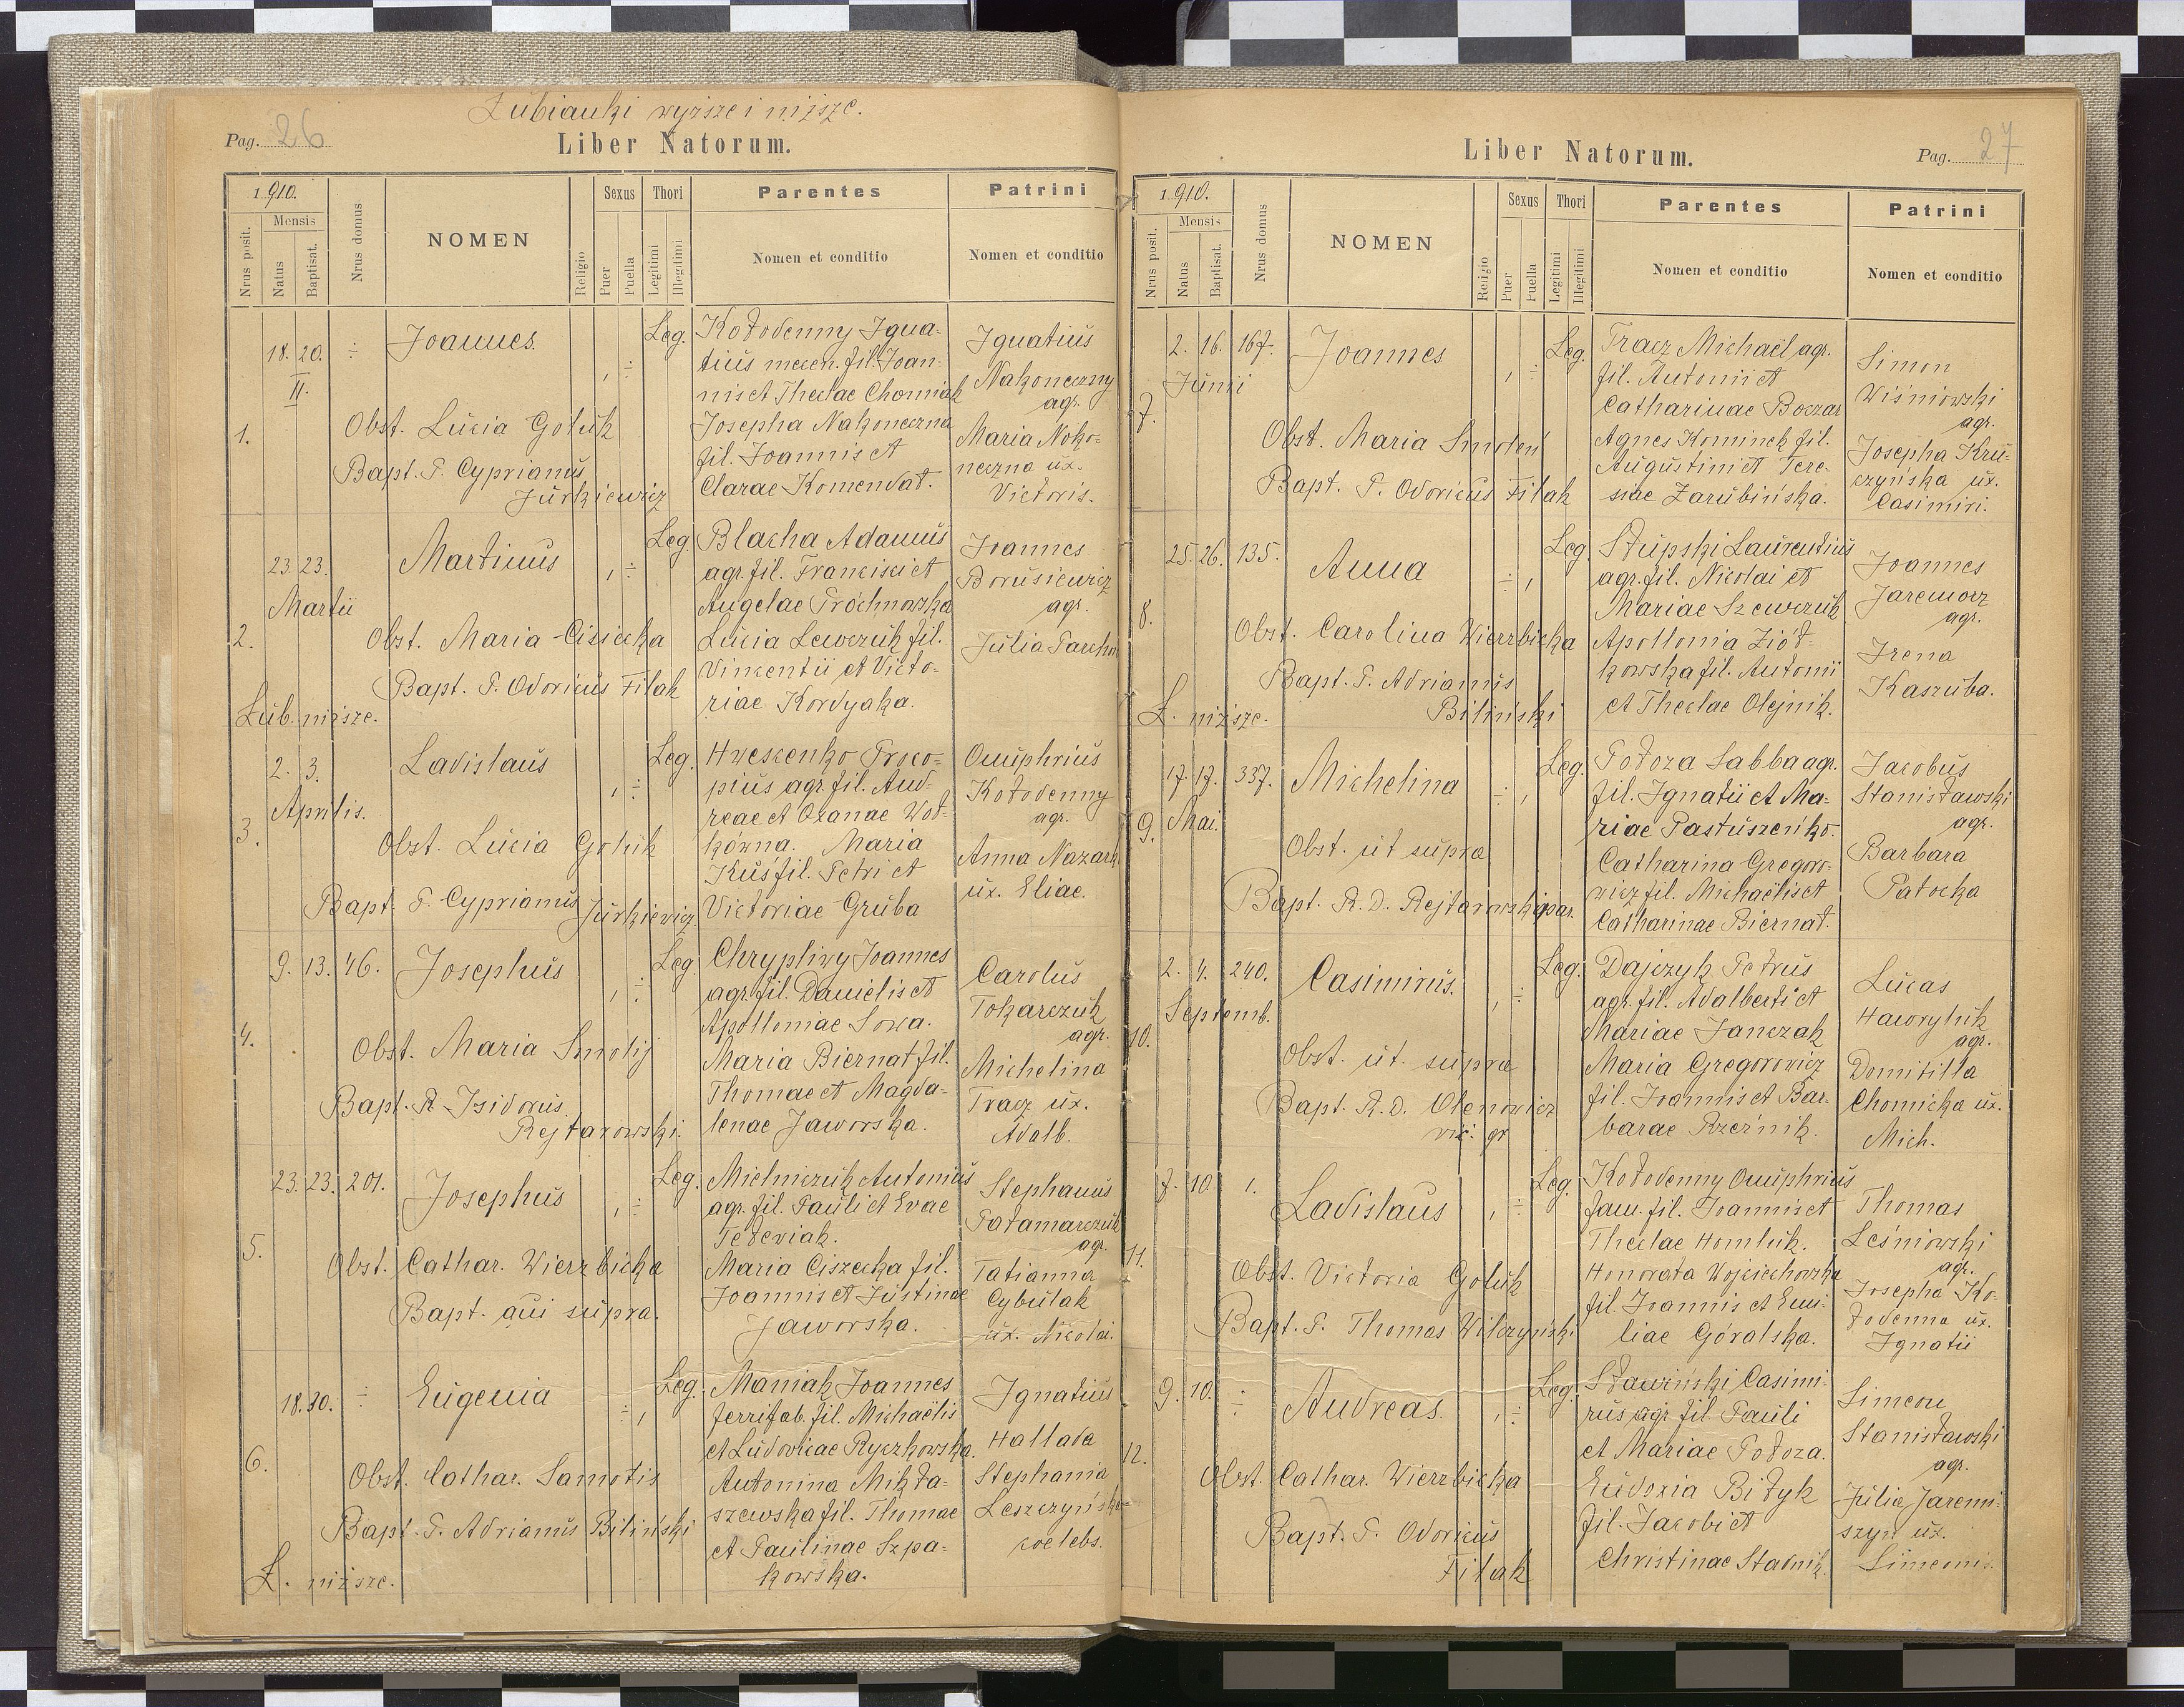 Łubianki wyższe i niższe.
Pag. 26
Liber Natorum.
1910.
Nrus posit.
Mensis
Natus
Baptisat.
Nrus domus
NOMEN
Religio
Sexus
Puer
Puella
Thori
Legitimi
Illegitimi
Parentes
Nomen et conditio
Patrini
Nomen et conditio
1.
18. 20. ÷
II.
Joannes.
Leg.
Obst. Lucia Goluk
Bapt. P. Cyprianus
Jurkiewicz
Kołodenny Igna-
tius mecen. fil. Joan-
nis et Theclae Chomiak
Josepha Nakoneczna
fil. Joannis et
Clarae Komendat.
Ignatius
Nakoneczny
agr.
Maria Nako-
neczna ux.
Victoris.
2.
23. 23.
Martii
Martinus
Leg.
Obst. Maria Cisiecka
Bapt. P. Odoricus Filak
Lub. niższe.
Blacha Adamus
agr. fil. Francisci et
Angelae Próchnowska
Lucia Lewczuk fil.
Vincentii et Victo-
riae Kordyaka.
Joannes
Borusiewicz
agr.
Julia Parchom
3.
2. 3.
Aprilis.
Ladislaus
Leg.
Obst. Lucia Goluk
Bapt. P. Cyprianus Jurkiewicz
Hwescenko Proco-
pius agr. fil. And-
reae et Oxanae Woł-
kówna. Maria
Kuś fil. Petri et
Victoriae Gruba
Onuphrius
Kołodenny
agr.
Anna Nazark
ux. Eliae.
4.
9. 13. 46.
Josephus
Leg.
Obst. Maria Smolij
Bapt. R. Isidorus
Rejtarowski.
Chrypliwy Joannes
agr. fil. Danielis et
Apolloniae Sowa.
Maria Biernat fil.
Thomae et Magda-
lenae Jaworska.
Carolus
Tokarczuk
agr.
Michelina
Tracz ux.
Adalb.
5.
23. 23. 201.
Josephus
Leg.
Obst. Cathar. Wierzbicka
Bapt. qui supra.
Michniczuk Antonius
agr. fil. Pauli et Evae
Fedeviak.
Maria Ciszecka fil.
Joannis et Justinae
Jaworska.
Stephanus
Pałamarczuk
agr.
Tatianna
Cybulak
ux. Nicolai.
6.
18. 30. ÷
Eugenia
Leg.
Obst. Cathar. Samotis
Bapt. P. Adrianus Biliński
Ł. niższe.
Maniak Joannes
ferrifab. fil. Michaëlis
et Ludovicae Ryczkowska.
Antonina Mikła-
szewska fil. Thomae
et Paulinae Szpa-
kowska.
Ignatius
Hallada
Stephania
Leszczyńska
coelebs.
Liber Natorum.
Pag. 27
1910.
Nrus posit.
Mensis
Natus
Baptisat.
Nrus domus
NOMEN
Religio
Sexus
Puer
Puella
Thori
Legitimi
Illegitimi
Parentes
Nomen et conditio
Patrini
Nomen et conditio
7.
2. 16. 167.
Junii
Joannes
Leg.
Obst. Maria Smoleń
Bapt. P. Odoricus Filak
Tracz Michaël agr.
fil. Antonii et
Catharinae Boczar
Agnes Kominek fil.
Augustini et Tere-
siae Zarubińska.
Simon
Wiśniowski
agr.
Josepha Kru-
czyńska ux.
Casimiri.
8.
25. 26. 135.
Anna
Leg.
Obst. Carolina Wierzbicka
Bapt. P. Adrianus
Biliński
Ł. niższe.
Słupski Laurentius
agr. fil. Nicolai et
Mariae Szewczuk
Apollonia Ziół-
kowska fil. Antonii
et Theclae Olejnik.
Joannes
Jaremocz
agr.
Irena
Kaszuba.
9.
17. 17. 337.
Mai.
Michelina
Leg.
Obst. ut supra
Bapt. R. D. Rejtarowski par.
Połoza Sabba agr.
fil. Ignatii et Ma-
riae Pastuszeńko.
Catharina Gregoro-
wicz fil. Michaëlis et
Catharinae Biernat.
Jacobus
Stanisławski
agr.
Barbara
Patocka
10.
2. 4. 240.
Septemb.
Casimirus.
Leg.
Obst. ut. supra
Bapt. R. D. Olenowicz
vic. gr
Dajczyk Petrus
agr. fil. Adalberti et
Mariae Janczak
Maria Gregorowicz
fil. Joannis et Bar-
barae Rzeźnik.
Lucas
Hawryluk
agr.
Domitilla
Chomicka ux.
Mich.
11.
7. 10. 1.
Ladislaus
Leg.
Obst. Victoria Goluk
Bapt. P. Thomas Wilczyński
Kołodenny Onuphrius
fam. fil. Joannis et
Theclae Homluk.
Honorata Wojciechowska
fil. Joannis et Emi-
liae Góralska.
Thomas
Leśniowski
agr.
Josepha Ko-
łodenna ux.
Ignatii
12.
9. 10. ÷
Andreas.
Leg.
Obst. Cathar. Wierzbicka
Bapt. P. Odoricus
Filak
Sławiński Casimi-
rus agr. fil. Pauli
et Mariae Połoza.
Eudoxia Biłyk
fil. Jacobi et
Christinae Stadnik.
Simeon
Stanisławski
agr.
Julia Jaremi-
szyn ux.
Simeonis.